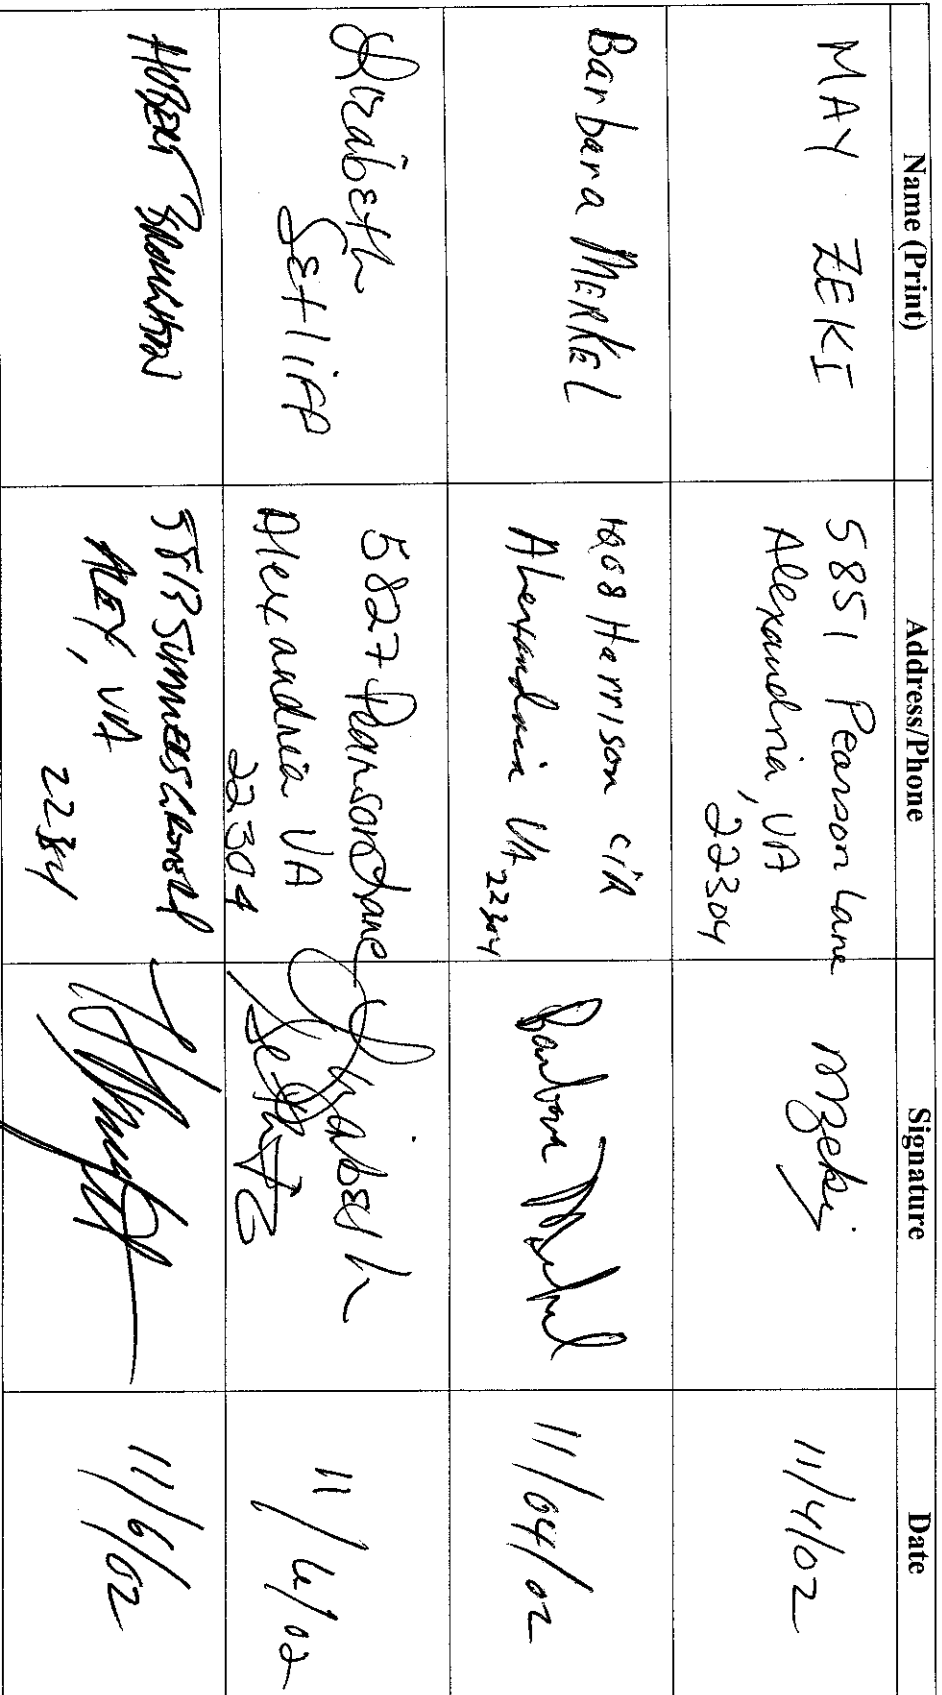 Name (Print) Address/Phone Signature Date
MAY ZEKI 5851 Pearson Lane
Alexandria, VA
22304 MZeki 11/4/02
Barbara MERKEL Harrison Cir
Alexandria VA 22304 Barbara Merkel 11/04/02
Elizabeth
SEtliff 5827 Pearson Lane
Alexandria VA
22304 Elizabeth
11/4/02
HUBERT 
ALEX, VA
11/6/02